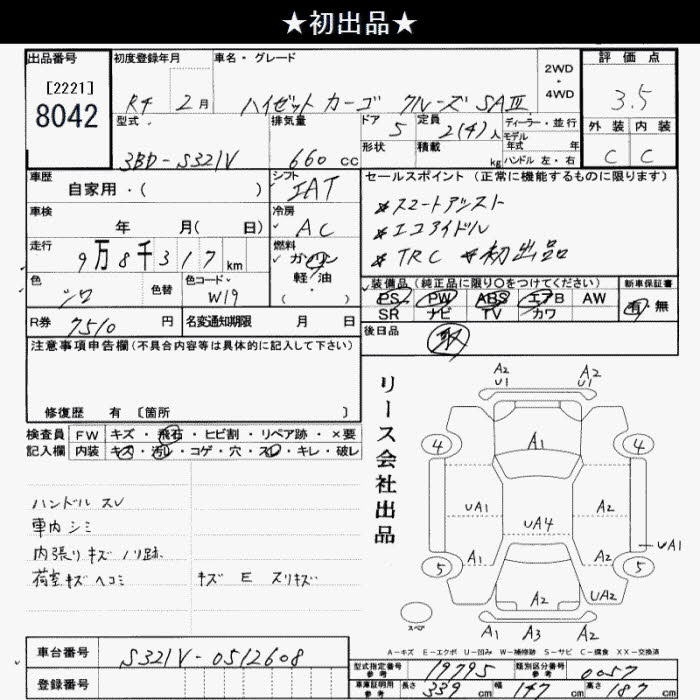 ★初出品★
出品番号 初度登録年月 車名・グレード 2WD・4WD 評価点
[2221]
8042
R4 2月 ハイゼット カーゴ クルーズ SAⅢ 3.5
型式 排気量 ドア 定員 ディーラー・並行 外装 内装
3BD-S321V 660cc 5 2(4)人 モデル年式 年式
形状 積載 kg ハンドル 左・右 C C
車歴 シフト セールスポイント(正常に機能するものに限ります)
自家用・( ) IAT
＊スマートアシスト
車検 冷房 ＊エコアイドル
年 月( 日) AC ＊TRC ＊初出品
走行 燃料
9万8千317km ガソリン・軽油・( )
色 色替 色コード 装備品(純正品に限り○をつけてください) 新車保証書
シロ W19 PS PW ABS エアB AW 有・無
SR ナビ TV カワ
R券 7510円 名変通知期限 月 日 後日品 取
注意事項申告欄(不具合内容等は具体的に記入して下さい)
修復歴 有 [箇所 ]
検査員 FW キズ・飛石・ヒビ割・リペア跡・×要
記入欄 内装 キズ・汚れ・コゲ・穴・スレ・キレ・破レ
ハンドル スレ
車内 シミ
内張り キズ ノリ跡
荷室 キズ ヘコミ キズ E スリキズ
リース会社出品
A2 U1
A2 U1
4 A1 4
UA1 UA4 A2
A1 A2 UA1
5 5
A2 UA2
スペア
A1 A3 A2
A－キズ E－エクボ U－凹み W－補修跡 S－サビ C－腐食 XX－交換済
車台番号 S321V-0512608
型式指定番号 参考 19795 類別区分番号 参考 0057
登録番号 車庫証明用 参考 長さ 339cm 幅 147cm 高さ 187cm